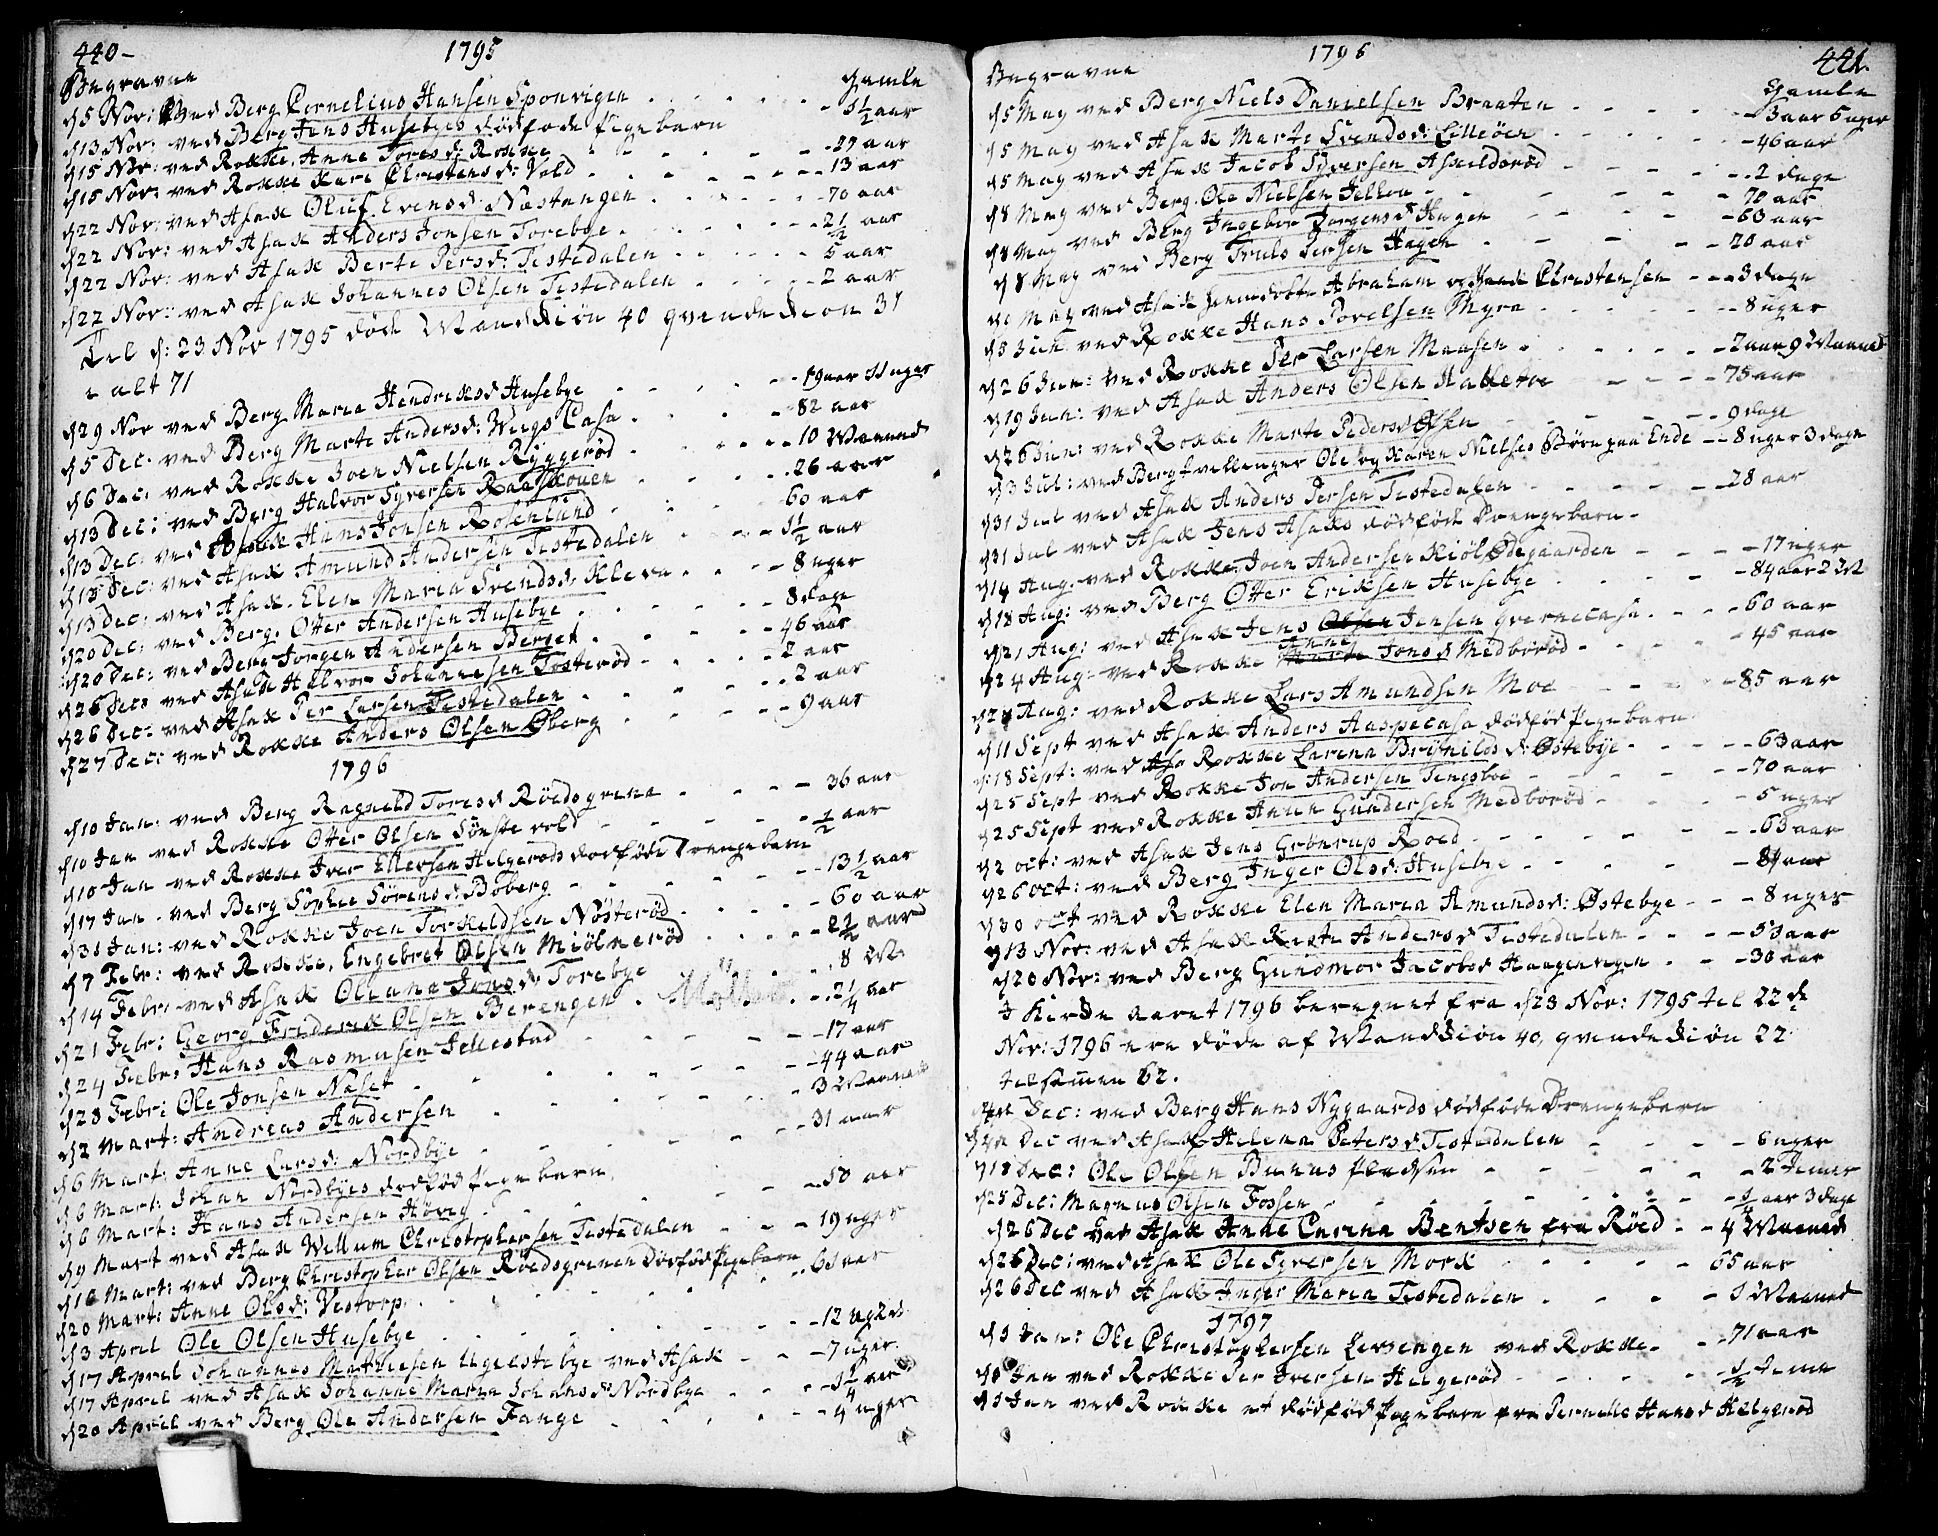 440-
1795
Begravne
Gamle
d5 Nov: ved Berg Cornelius Hansen Sponvigen - 1½ aar
d13 Nov: ved Berg Jens Husebyes dødføde Pigebarn
d15 Nov: ved Rokke, Anne Toresd: Rokke - 29 aar
d15 Nov: ved Rokke Kari Christensd: Vold - 13 aar
d22 Nov: ved Asak Oluf Evensd: Næstangen - 70 aar
d22 Nov: ved Asak Anders Jonsen Torebye - 2½ aar
d22 Nov: ved Asak Berte Persd: Tistedalen - 5 aar
d22 Nov: ved Asak Johannes Olsen Tistedalen - 2 aar
Til d: 23 Nov 1795 døde Mandkiøn 40 qvindekiøn 31
i alt 71
d29 Nov ved Berg Maria Hendriksd Husebye - 19 aar 11 uger
d5 Dec: ved Berg Marte Andersd: Wiigs Casa - 82 aar
d6 Dec: ved Rokke Joen Nielsen Ryggerød - 10 Maaned
d13 Dec: ved Berg Halvor Syversen Raaskouen - 26 aar
d13 Dec: ved Asak Hans Jonsen Rosenlund - 60 aar
d13 Dec: ved Asak Amund Andersen Tistedalen - 1½ aar
d13 Dec: ved Asak Elen Maria Svendsd: Kleva - 8 uger
d20 Dec: ved Berg. Otter Andersen Husebye - 8 dage
d20 Dec: ved Berg Jørgen Andersen Berget - 46 aar
d26 Dec: ved Asak Halvor Johannesen Tosterød - 2 aar
d26 Dec: ved Asak Per Larsen Tistedalen - 2 aar
d27 Dec: ved Rokke Anders Olsen Øberg - 9 aar
1796
d10 Jan: ved Berg Ragnild Toresd Røedsgrena - 36 aar
d10 Jan ved Rokke Otter Olsen Sønstevold - ½ aar
d10 Jan ved Rokke Iver Ellersen Helgerøds dødføde Drengebarn
d17 Jan. ved Berg Sophie Sørensd: Boberg - 13½ aar
d31 Jan: ved Rokke Joen Torkildsen Nøsterød - 60 aar
d7 Febr: ved Rokke, Engebret Olsen Miølnerød - 2½ aar
d14 Febr: ved Asak Oleana Jonsd: Torebye - 8 M:
d21 Febr: Georg Friderik Olsen Berengen - 2¼ aar
d24 Febr: Hans Rasmusen Jellestad - 17 aar
d28 Febr: Ole Jonsen Næset - 44 aar
d2 Mart: Andreas Andersen - 3 Maaned
d6 Mart: Anne Larsd: Nordbye - 31 aar
d6 Mart: Johan Nordbyes dødfød Pigebarn
d6 Mart: Hans Andersen Høvig - 50 aar
d9 Mart ved Asak Willum Christophersen Tistedalen - 19 uger
d16 Mart: ved Berg Christopher Olsen Røedsgrenen dødfød Pigebarn
d20 Mart: Anne Olsd: Vestorp - 60 aar
d3 April Ole Olsen Husebye - 12 uger
d17 April Johannes Mathiesen Ugelstebye ved Asak - 7 uger
d17 April ved Asak Johanne Maria Johansd: Nordbye - 1¼ aar
d20 April ved Berg Ole Andersen Fange - 4 uger
1796
441.
Begravne
Gamle
d5 May ved Berg Niels Danielsen Braaten - 3 aar 5 uger
d5 May ved Asak Marte Svendsd: Lilleøen - 46 aar
d5 May ved Asak Jacob Syversen Askildsrød - 2 dage
d8 May ved Berg. Ole Nielsen Jellou - 70 aar
d8 May ved Berg Ingebor Jørgensd Hagen - 63 aar
d8 May ved Berg Truls Persen Hagen - 20 aar
d May ved Asak hiemdøbte Abraham og Isaak Christensen - 3 dage
d5 Jun ved Rokke Hans Povelsen Myra - 8 uger
d26 Jun: ved Rokke Per Larsen Maasen - 2 aar 9 Maaned
d19 Jun: ved Asak Anders Olsen Hallerøe - 75 aar
d26 Jun: ved Rokke Marte Pedersd Olsen - 9 dage
d3 Jul: ved Berg tvillinger Ole og Karen Nielses Børn paa Ende - 8 uger 3 dage
d31 Jul ved Asak Anders Persen Tistedalen - 28 aar
d31 Jul ved Asak Jens Asaks dødføde Drengebarn -
d14 Aug. ved Rokke Joen Andersen Kiøl Ødegaarden - 17 uger
d18 Aug: ved Berg Otter Eriksen Husebye - 84 aar 2 M
d21 Aug: ved Asak Jens Jensen qvernecasa - 60 aar
d24 Aug: ved Rokke Anne Jonsd Medbørød - 45 aar
d28 Aug: ved Rokke Lars Amundsen Moe - 85 aar
d11 Sept ved Asak Anders Aaspecasa dødfød Pigebarn
d:18 Sept: ved Rokke Larena Brynilds d: Østebye - 63 aar
d25 Sept ved Rokke Jon Andersen Tingsboe - 70 aar
d25 Sept ved Rokke Anun Gundersen Medborød - 5 uger
d2 oct: ved Asak Jens Grønrup Roed - 63 aar
d26 oct: ved Berg Inger Olsd: Husebye
d30 oct ved Rokke Elen Maria Amundsd: Østebye - 8 uger
d13 Nov: ved Asak Kirsti Andersd Tistedalen - 53 aar
d20 Nov: ved Berg Gundmor Jacobsd Haagenvegen - 30 aar
I Kirke aaret 1796 beregnet fra d23 Nov: 1795 til 22 de
Nov: 1796 ere døde af Mandkiøn 40, qvindekiøn 22
tilsamen 62.
Dec: ved Berg Hans Nygaards dødføde Drengebarn
Dec ved Asak Helena Petersd Tistedalen - 6 uger
d18 Dec: Ole Olsen Bunæs pladsen - 2 Timer
d25 Dec: Magnus Olsen Fossen - ¼ aar 3 dage
d26 Dec ved Asak Anne Carina Bentsen fra Røed - 4 Maaned
d26 Dec: ved Asak Ole Syversen Mork - 65 aar
d26 Dec ved Asak Inger Maria Tistedalen - 1 Maaned
1797
d1 Jan: Ole Christophersen Lersengen ved Rokke - 71 aar
d1 Jan ved Rokke Per Iversen Helgerød - ½ Time
d1 Jan ved Rokke et dødfød Pigebarn fra Pernille Hansd Helgerød